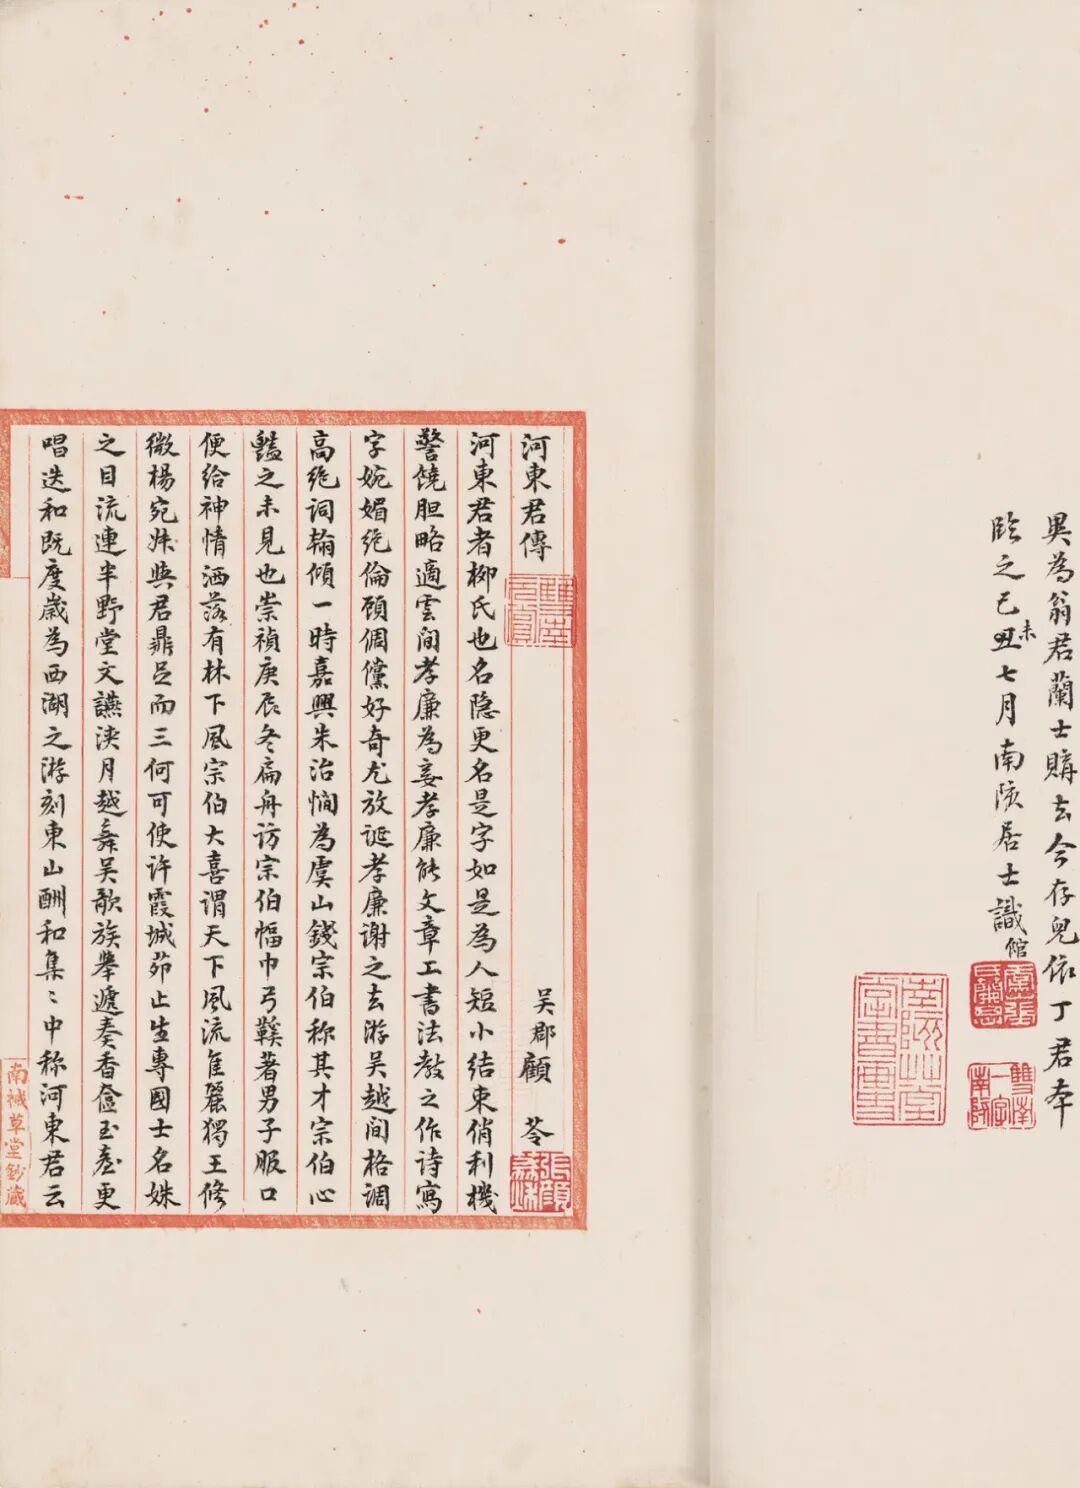 吳為翁君蘭士購去今存兒依丁君本
臨之己丑未七月南陔居士識
館
河東君傳
吴郡顧苓
河東君者柳氏也名隐更名是字如是為人短小結束俏利機
警饒胆略適雲间孝廉為妾孝廉能文章工書法教之作诗寫
字婉媚绝倫顧倜儻好奇尤放诞孝廉谢之去游吴越间格調
高绝词翰傾一時嘉興朱治憪為虞山錢宗伯称其才宗伯心
豔之未見也崇禎庚辰冬扁舟访宗伯幅巾弓鞋著男子服口
便给神情洒落有林下風宗伯大喜谓天下風流隹麗獨王修
微楊宛姝與君鼎足而三何可使许霞城茆止生專國士名姝
之目流連半野堂文讌浹月越舞吴歌族舉遞奏香奩玉臺更
唱迭和既度歲為西湖之游刻東山酬和集〻中称河東君云
南裓草堂鈔藏